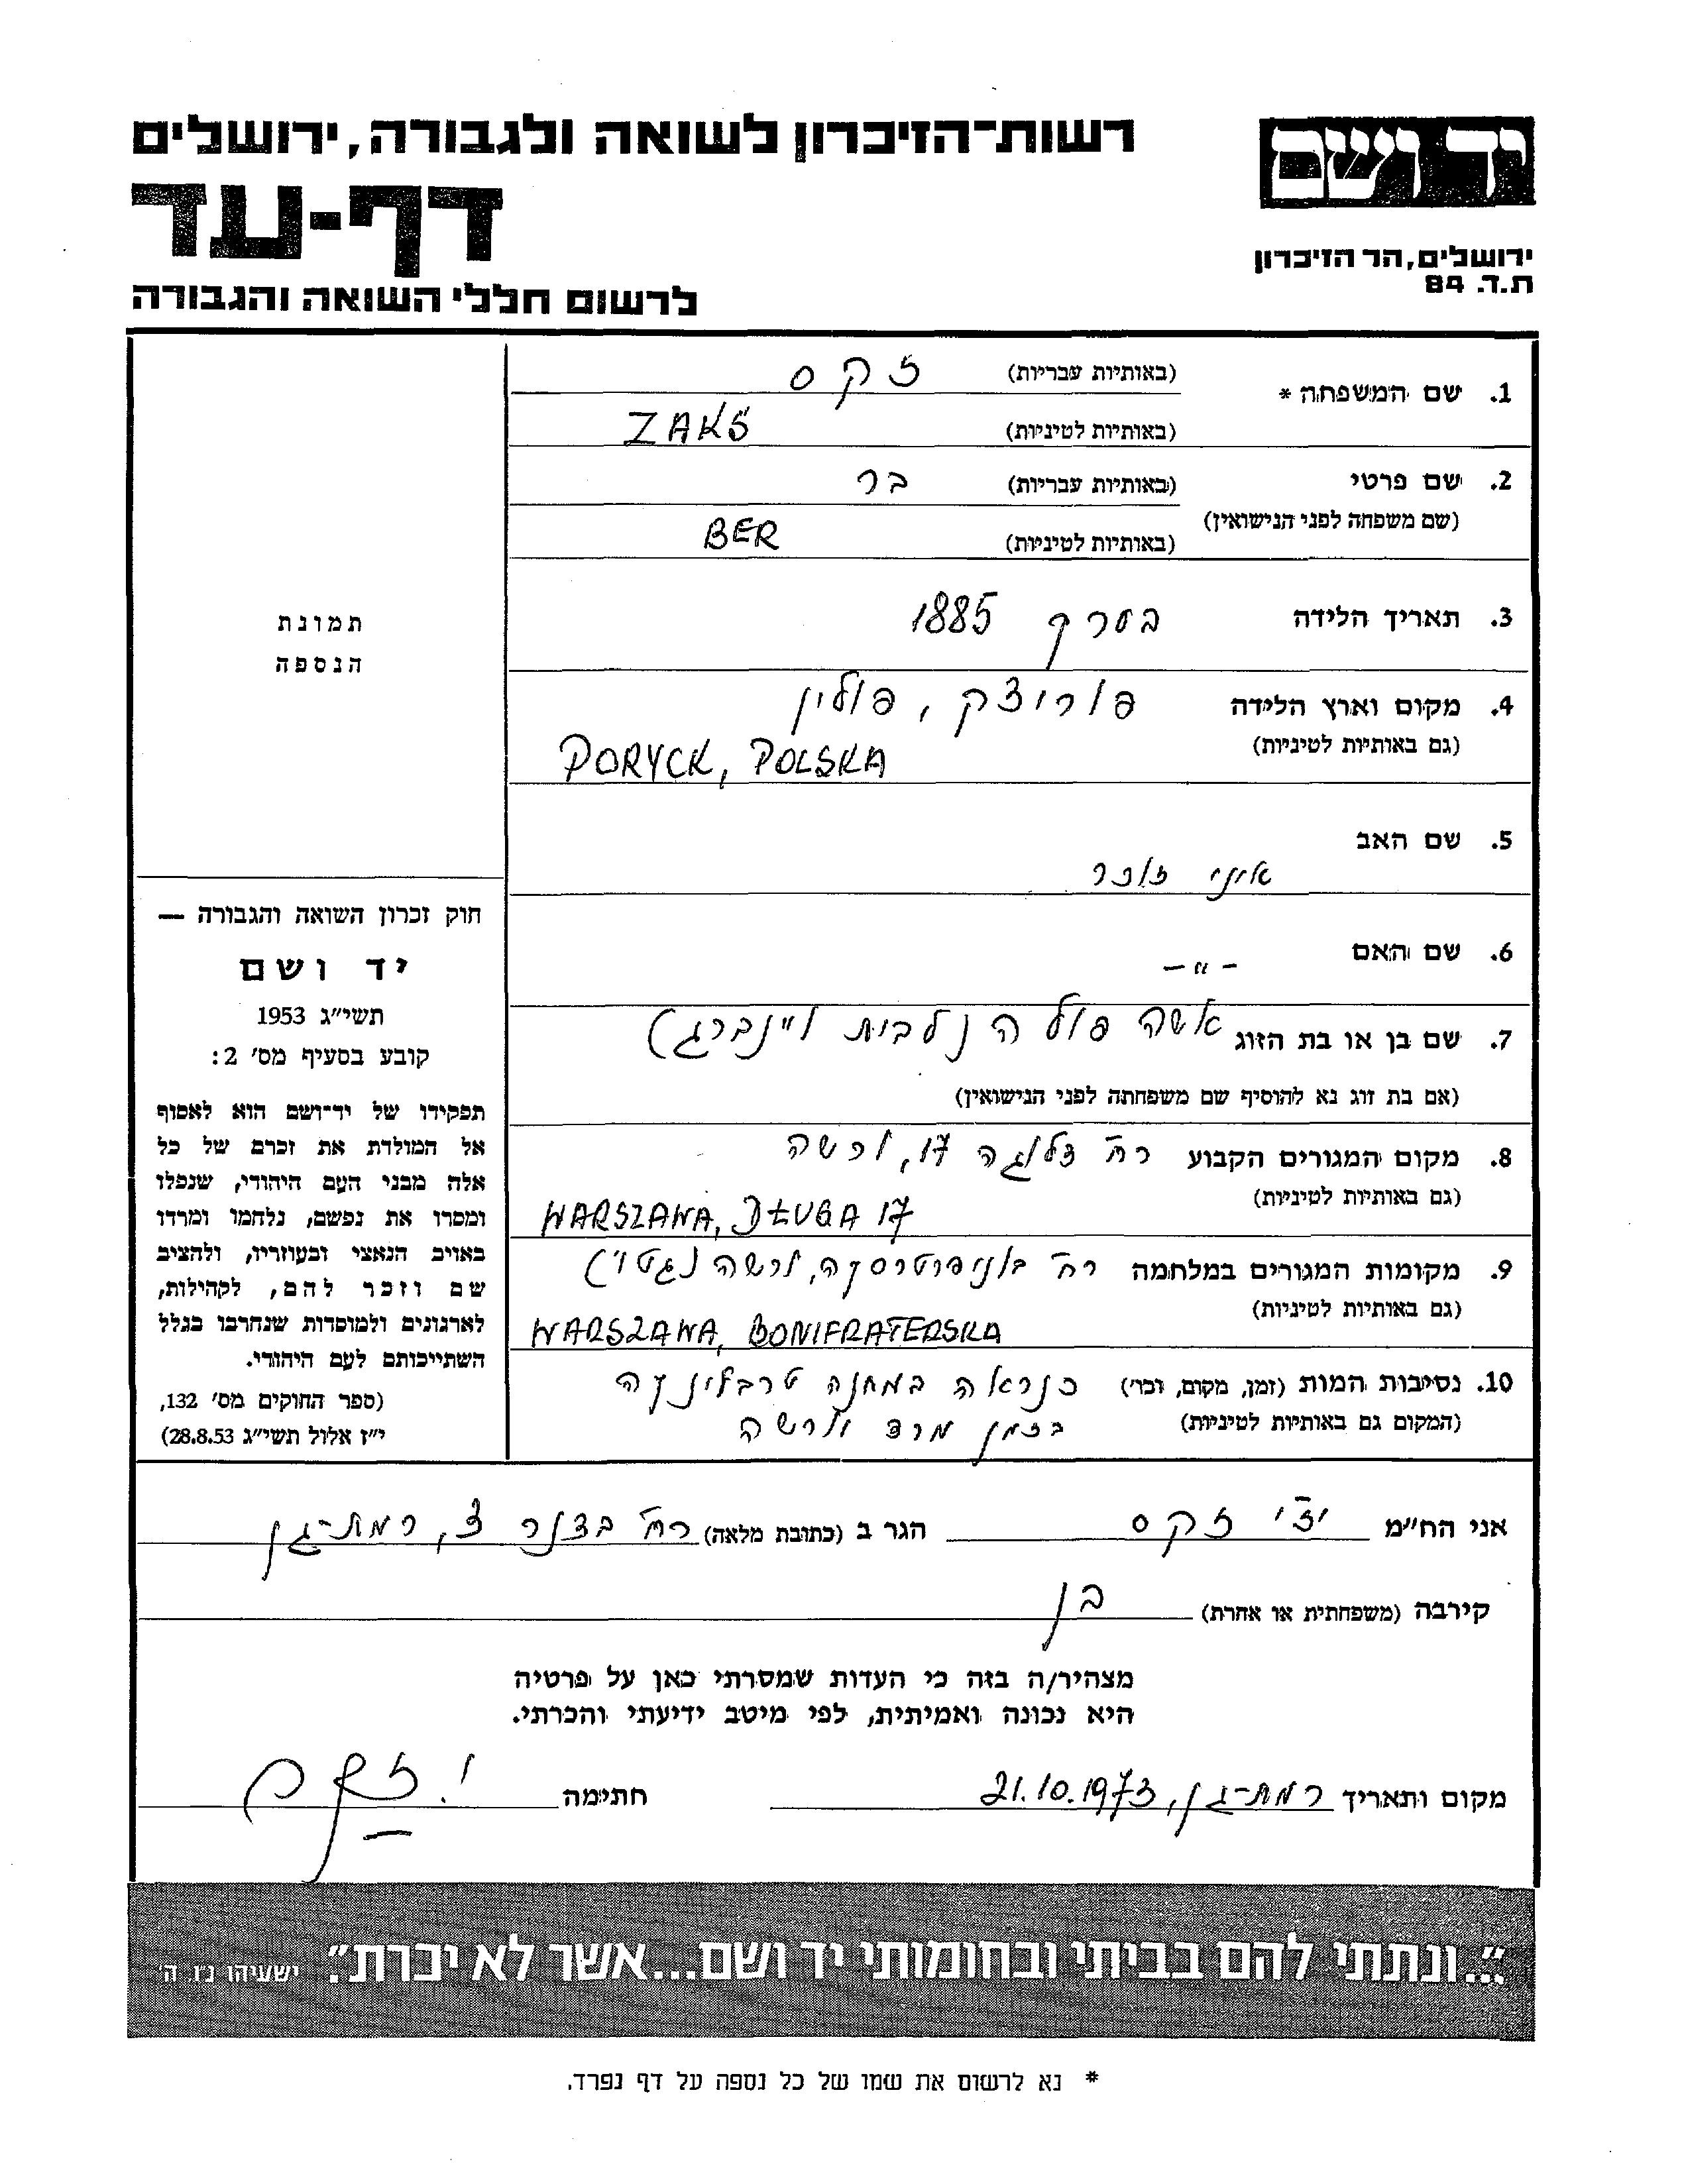 רשות־הזיכרון לשואה ולגבורה, ירושלים
יד ושם
דף-עד
ירושלים, הר הזיכרון
ת.ד. 84
לרשום חללי השואה והגבורה
1. שם המשפחה * (באותיות עבריות) זקס
(באותיות לטיניות) ZAKS
2. שם פרטי (באותיות עבריות) בר
(שם משפחה לפני הנישואין)
(באותיות לטיניות) BER
3. תאריך הלידה בערך 1885
4. מקום וארץ הלידה פוריצק, פולין
(גם באותיות לטיניות) PORYCK, POLSKA
5. שם האב
איני זוכר
6. שם האם
- " -
7. שם בן או בת הזוג אשה פולה (לבית ויינברג)
(אם בת זוג נא להוסיף שם משפחתה לפני הנישואין)
8. מקום המגורים הקבוע רח' דלוגה 17, ורשה
(גם באותיות לטיניות) WARSZAWA, DŁUGA 17
9. מקומות המגורים במלחמה רח' בוניפרטרסקה, ורשה (גטו)
(גם באותיות לטיניות) WARSZAWA, BONIFRATERSKA
10. נסיבות המות (זמן, מקום, וכו') כנראה במחנה טרבלינקה
(המקום גם באותיות לטיניות) בזמן מרד ורשה
תמונת
הנספה
חוק זכרון השואה והגבורה —
יד ושם
תשי"ג 1953
קובע בסעיף מס' 2:
תפקידו של יד־ושם הוא לאסוף
אל המולדת את זכרם של כל
אלה מבני העם היהודי, שנפלו
ומסרו את נפשם, נלחמו ומרדו
באויב הנאצי ובעוזריו, ולהציב
שם וזכר להם, לקהילות,
לארגונים ולמוסדות שנחרבו בגלל
השתייכותם לעם היהודי.
(ספר החוקים מס' 132,
י"ז אלול תשי"ג 28.8.53)
אני הח"מ זקס הגר ב (כתובת מלאה) רח' 3, רמת-גן
קירבה (משפחתית או אחרת) בן
מצהיר/ה בזה כי העדות שמסרתי כאן על פרטיה
היא נכונה ואמיתית, לפי מיטב ידיעתי והכרתי.
מקום ותאריך רמת-גן, 21.10.1973 חתימה י. זקס
"...ונתתי להם בביתי ובחומותי יד ושם...אשר לא יכרת". ישעיהו נ"ו ה'
* נא לרשום את שמו של כל נספה על דף נפרד.